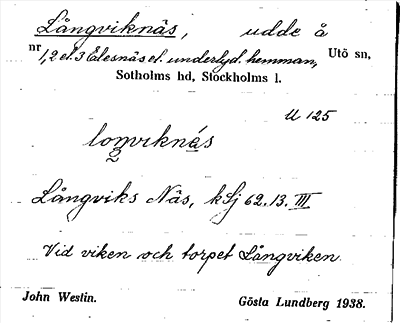 Långviknäs, udde å
nr 1, 2 el. 3 Ålesnäs el. underlyd. hemman, Utö sn,
Sotholms hd, Stockholms l.
U 125
loŋviknás
Långviks Näs, kSj 62.13. III
Vid viken och torpet Långviken.
John Westin. Gösta Lundberg 1938.